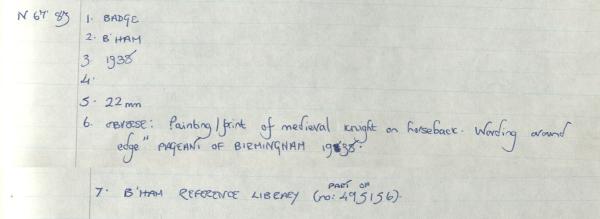 N 67' 83
1. BADGE
2. B'HAM
3. 1938
4.
5. 22mm
6. OBVERSE: Painting/print of medieval knight on horseback. Wording around
edge "PAGEANT OF BIRMINGHAM 1938".
7. B'HAM REFERENCE LIBRARY (PART OF no: 495156).